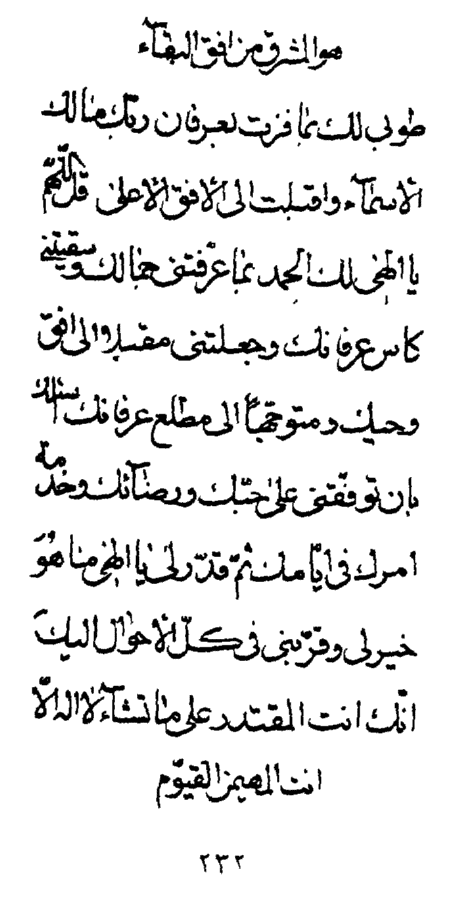 هو المشرق من افق البقآء
طوبى لك بما فزت بعرفان ربّك مالك
الاسمآء و اقبلت الى الافق الاعلى قل اللّهمّ
يا الهى لك الحمد بما عرّفتنى جمالك و سقيتنى
كاس عرفانك و جعلتنى مقبلا الى افق
وحيك و متوجّهاً الى مطلع عرفانك اسئلك
بان توفّقنى على حبّك و رضآئك و خدمة
امرك فى ايّامك ثمّ قدّر لى يا الهى ما هُوَ
خير لى و قرّبنى فى كلّ الاحوال اليكَ
انّك انت المقتدر على ما تشآء لا اله الّا
انت المهيمن القيّوم
٢٣٢